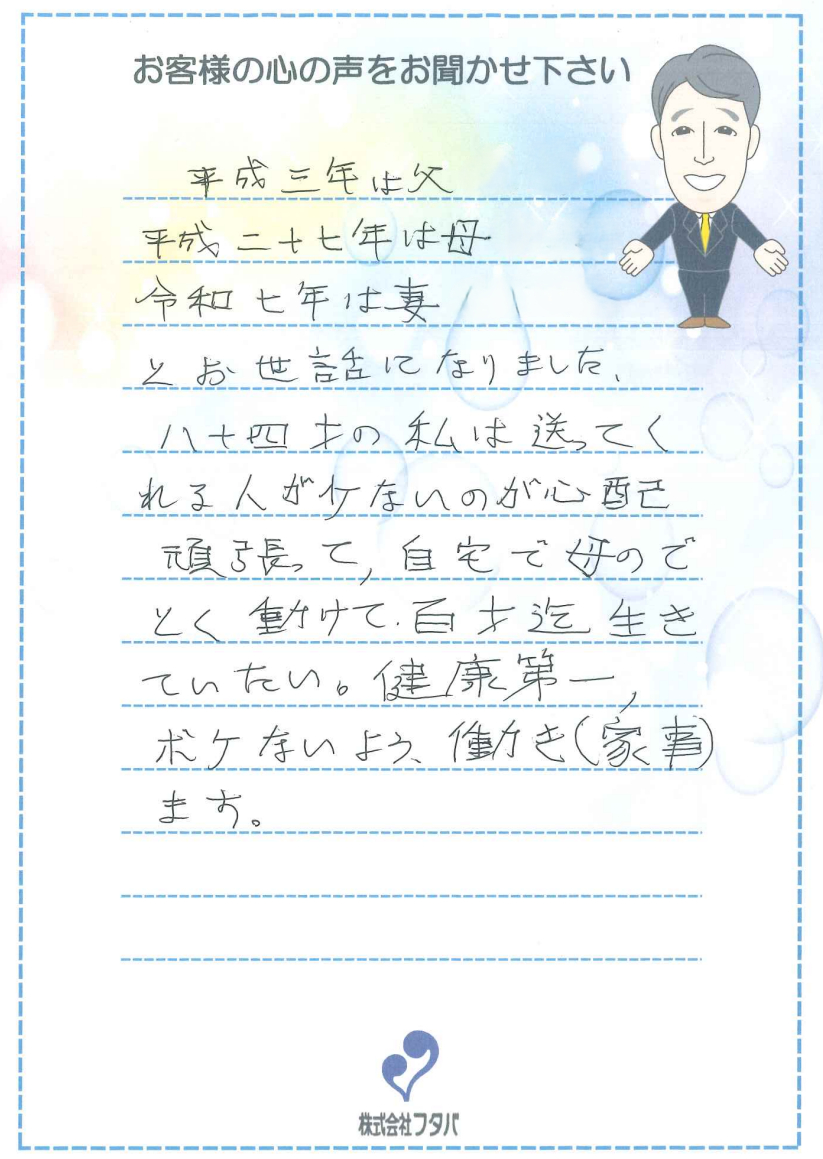 お客様の心の声をお聞かせ下さい
平成三年は父
平成二十七年は母
令和七年は妻
とお世話になりました、
八十四才の私は送ってく
れる人がケないのが心配
頑張って,自宅で母ので
とく動けて.百才迄生き
ていたい。健康第一,
ボケないよう、働き(家事)
ます。
株式会社フタバ